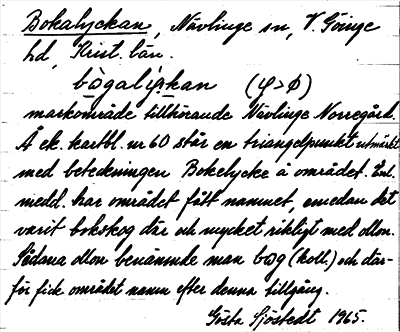 Bokalyckan, Nävlinge sn, V. Göinge
hd, Krist. län.
bɔgalykan (φ>ϕ)
markområde tillhörande Nävlinge Norregård.
Å ek. kartbl. nr 60 står en triangelpunkt utmärkt
med beteckningen Bokelycke å området. Enl.
medd. har området fått namnet, emedan det
varit bokskog där och mycket rikligt med ollon.
Sådana ollon benämnde man bɔg (koll.) och där-
för fick området namn efter denna tillgång.
Gösta Sjöstedt 1965.